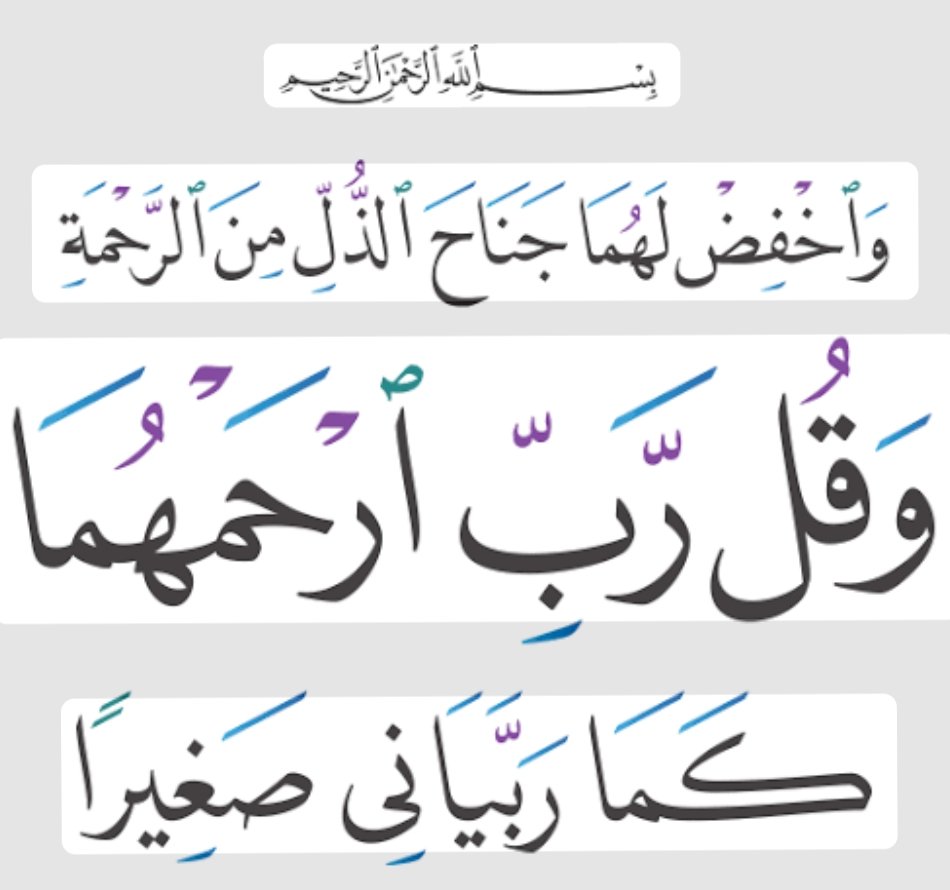 بِسْمِ ٱللَّهِ ٱلرَّحْمَٰنِ ٱلرَّحِيمِ
وَٱخْفِضْ لَهُمَا جَنَاحَ ٱلذُّلِّ مِنَ ٱلرَّحْمَةِ
وَقُل رَّبِّ ٱرْحَمْهُمَا
كَمَا رَبَّيَانِى صَغِيرًا